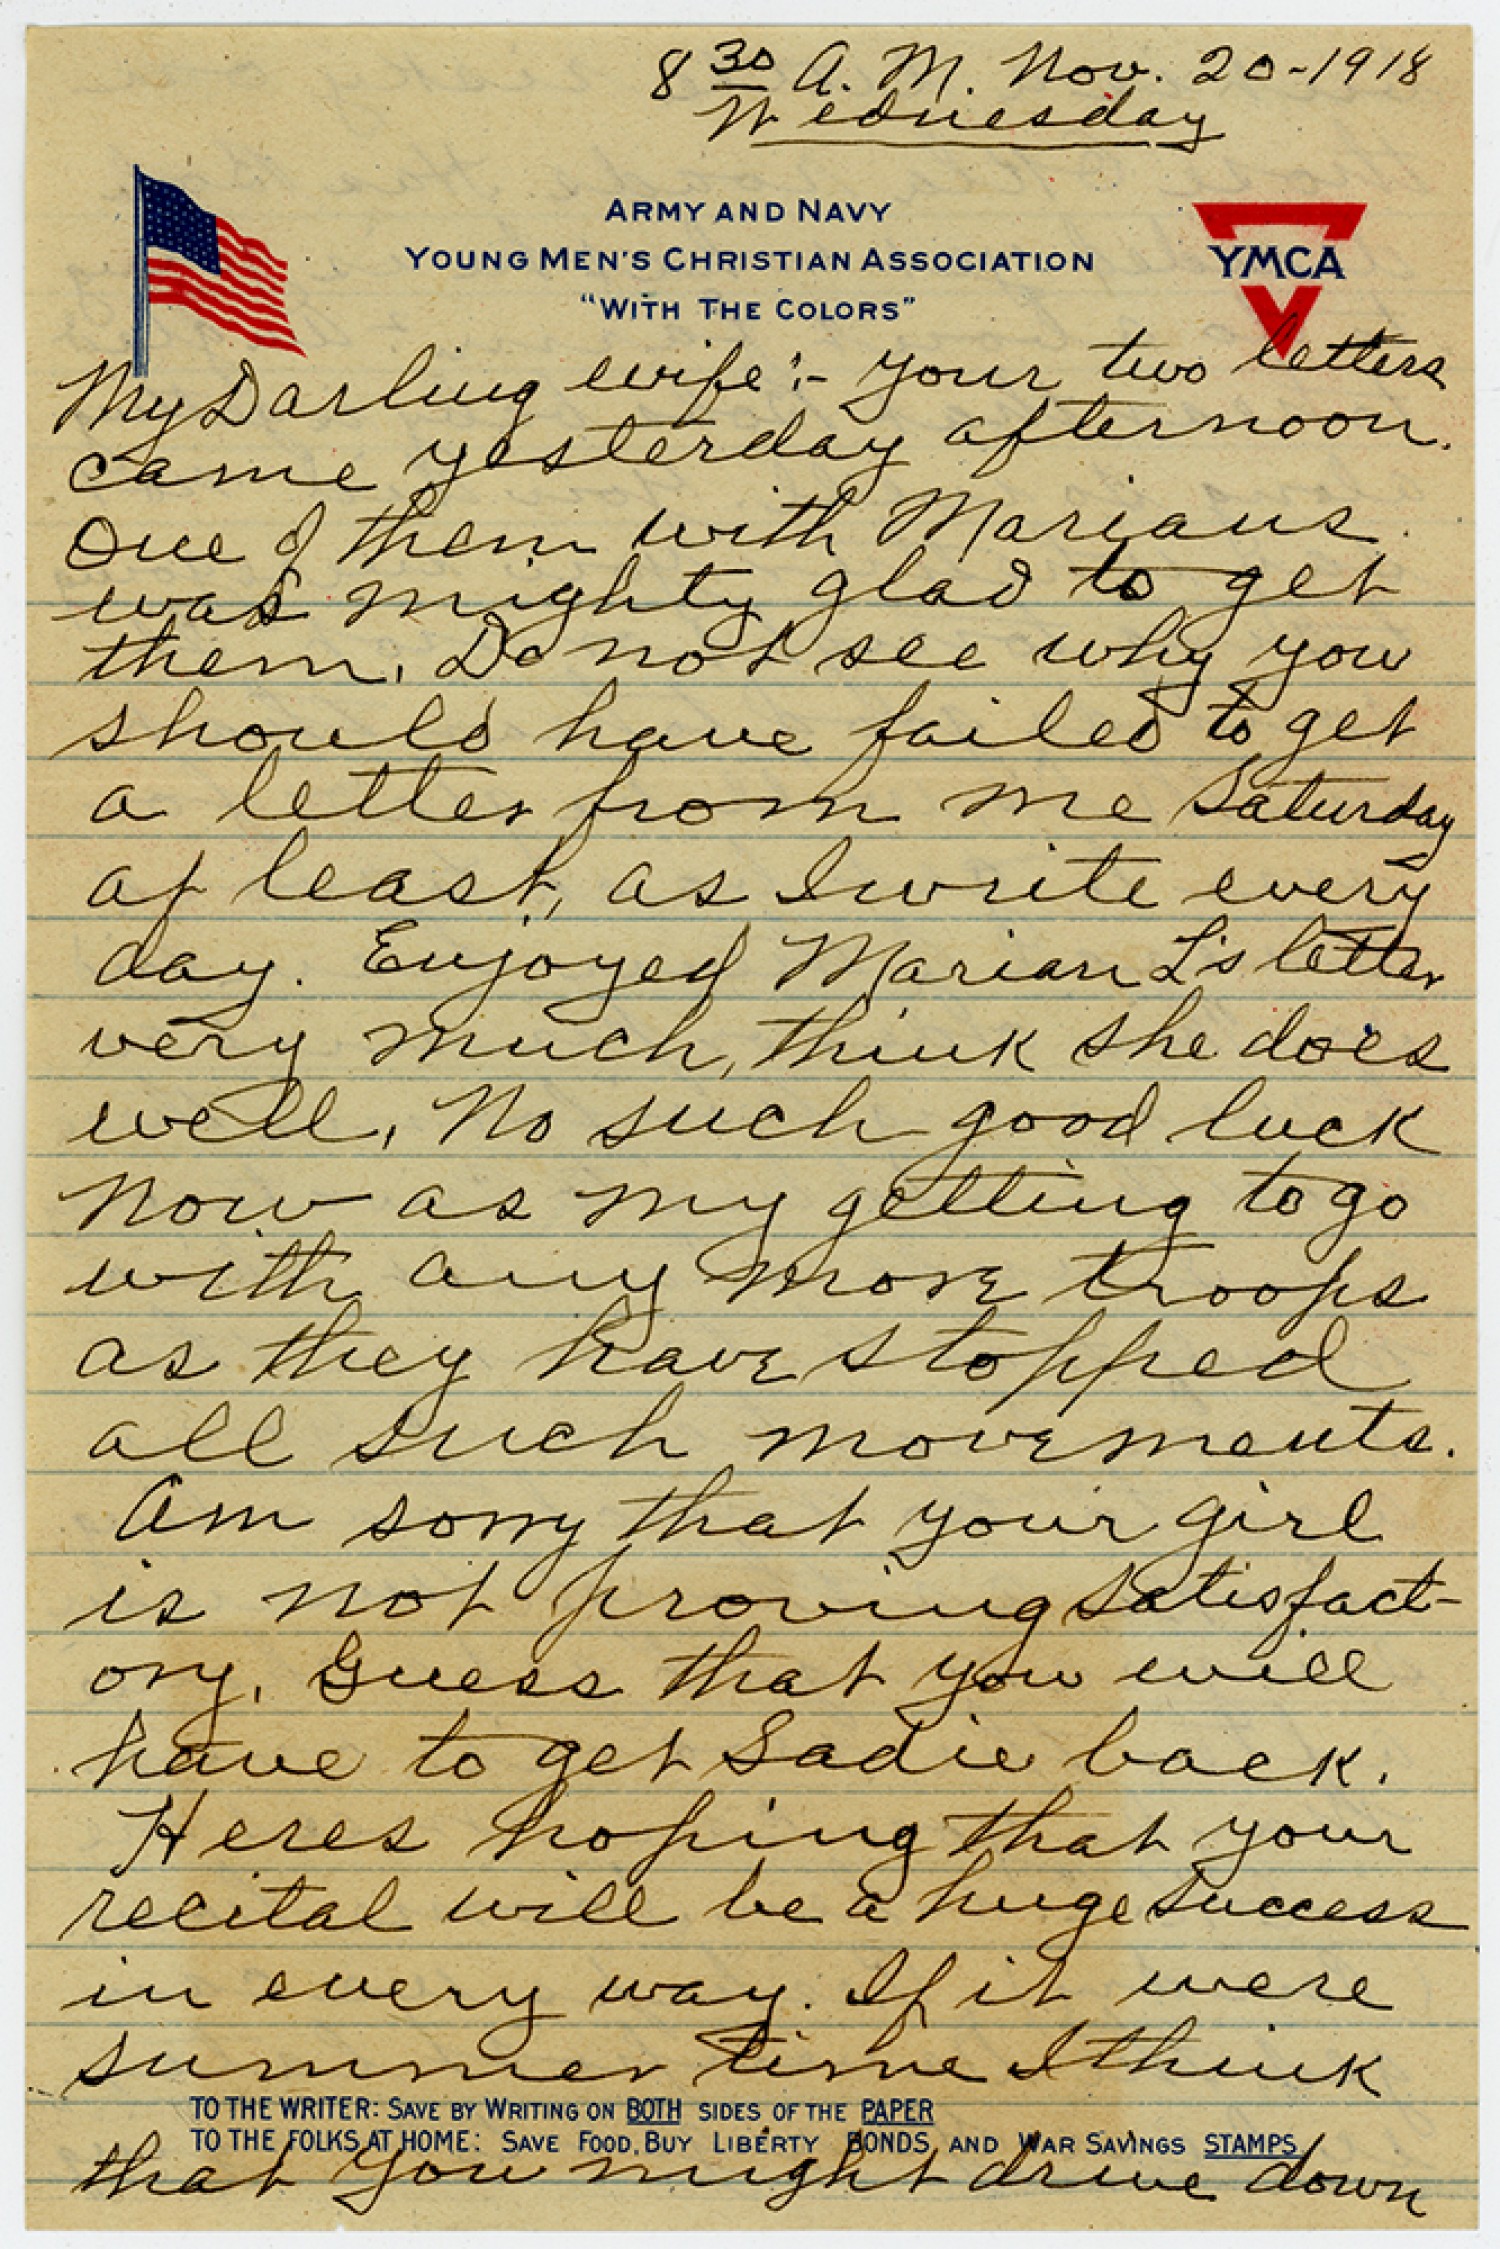 8 30 A. M. Nov. 20-1918
Wednesday
ARMY AND NAVY
YOUNG MEN'S CHRISTIAN ASSOCIATION
"WITH THE COLORS"
YMCA
My Darling wife:- your two letters
came yesterday afternoon.
One of them with Marians.
was mighty glad to get
them. Do not see why you
should have failed to get
a letter from me Saturday
at least, as I write every
day. Enjoyed Marian L's letter
very much, think she does
well. No such good luck
now as my getting to go
with any more troops
as they have stopped
all such movements.
Am sorry that your girl
is not proving satisfact-
ory. Guess that you will
have to get Sadie back.
Heres hoping that your
recital will be a huge success
in every way. If it were
summer time I think
TO THE WRITER: SAVE BY WRITING ON BOTH SIDES OF THE PAPER
TO THE FOLKS AT HOME: SAVE FOOD, BUY LIBERTY BONDS AND WAR SAVINGS STAMPS
that you might drive down